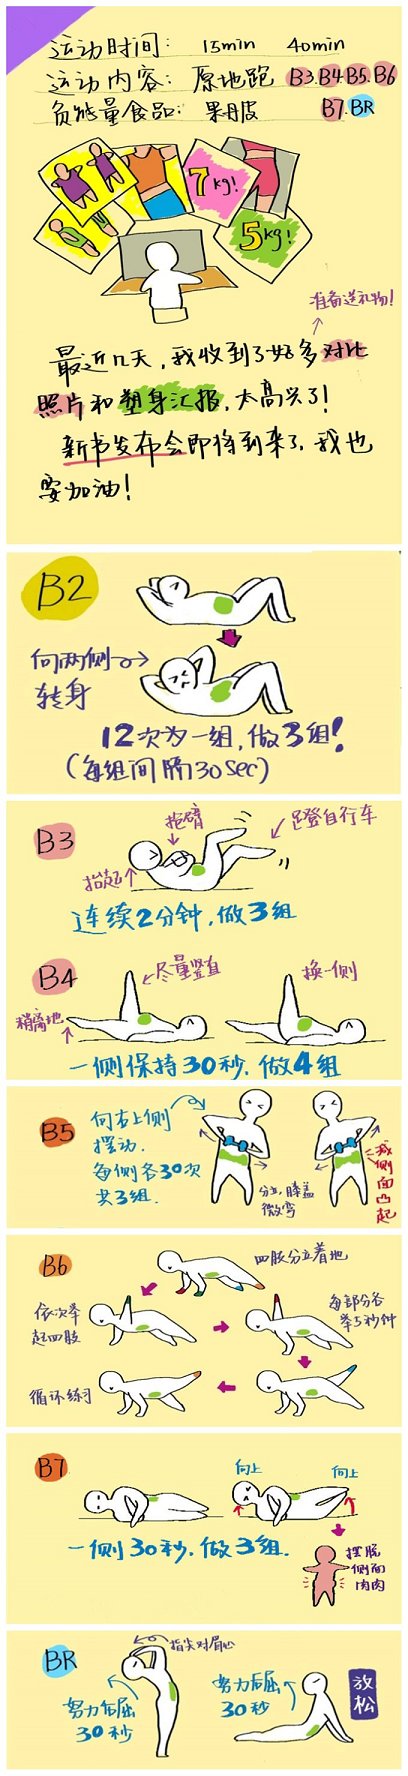 运动时间: 15min 40min
运动内容: 原地跑 B3.B4.B5.B6
B7.BR
负能量食品: 果脯
7kg!
5kg!
准备送礼物!
最近几天,我收到了好多对比
照片和塑身汇报,太高兴了!
新书发布会即将到来了,我也
要加油!
B2
向两侧
转身
12次为一组,做3组!
(每组间隔30sec)
B3
抱臂
足登自行车
抬起
连续2分钟,做3组
B4
尽量竖直
换一侧
稍离地
一侧保持30秒.做4组
B5
向右上侧
摆动.
每侧各30次
共3组.
分立,膝盖
微弯
减侧面凸起
B6
四肢分立着地
依次举
起四肢
每部分各
举5秒钟
循环练习
B7
向上
向上
一侧30秒,做3组.
摆脱
侧面
肉肉
BR
指尖对眉心
努力后屈
30秒
努力后屈
30秒
放松